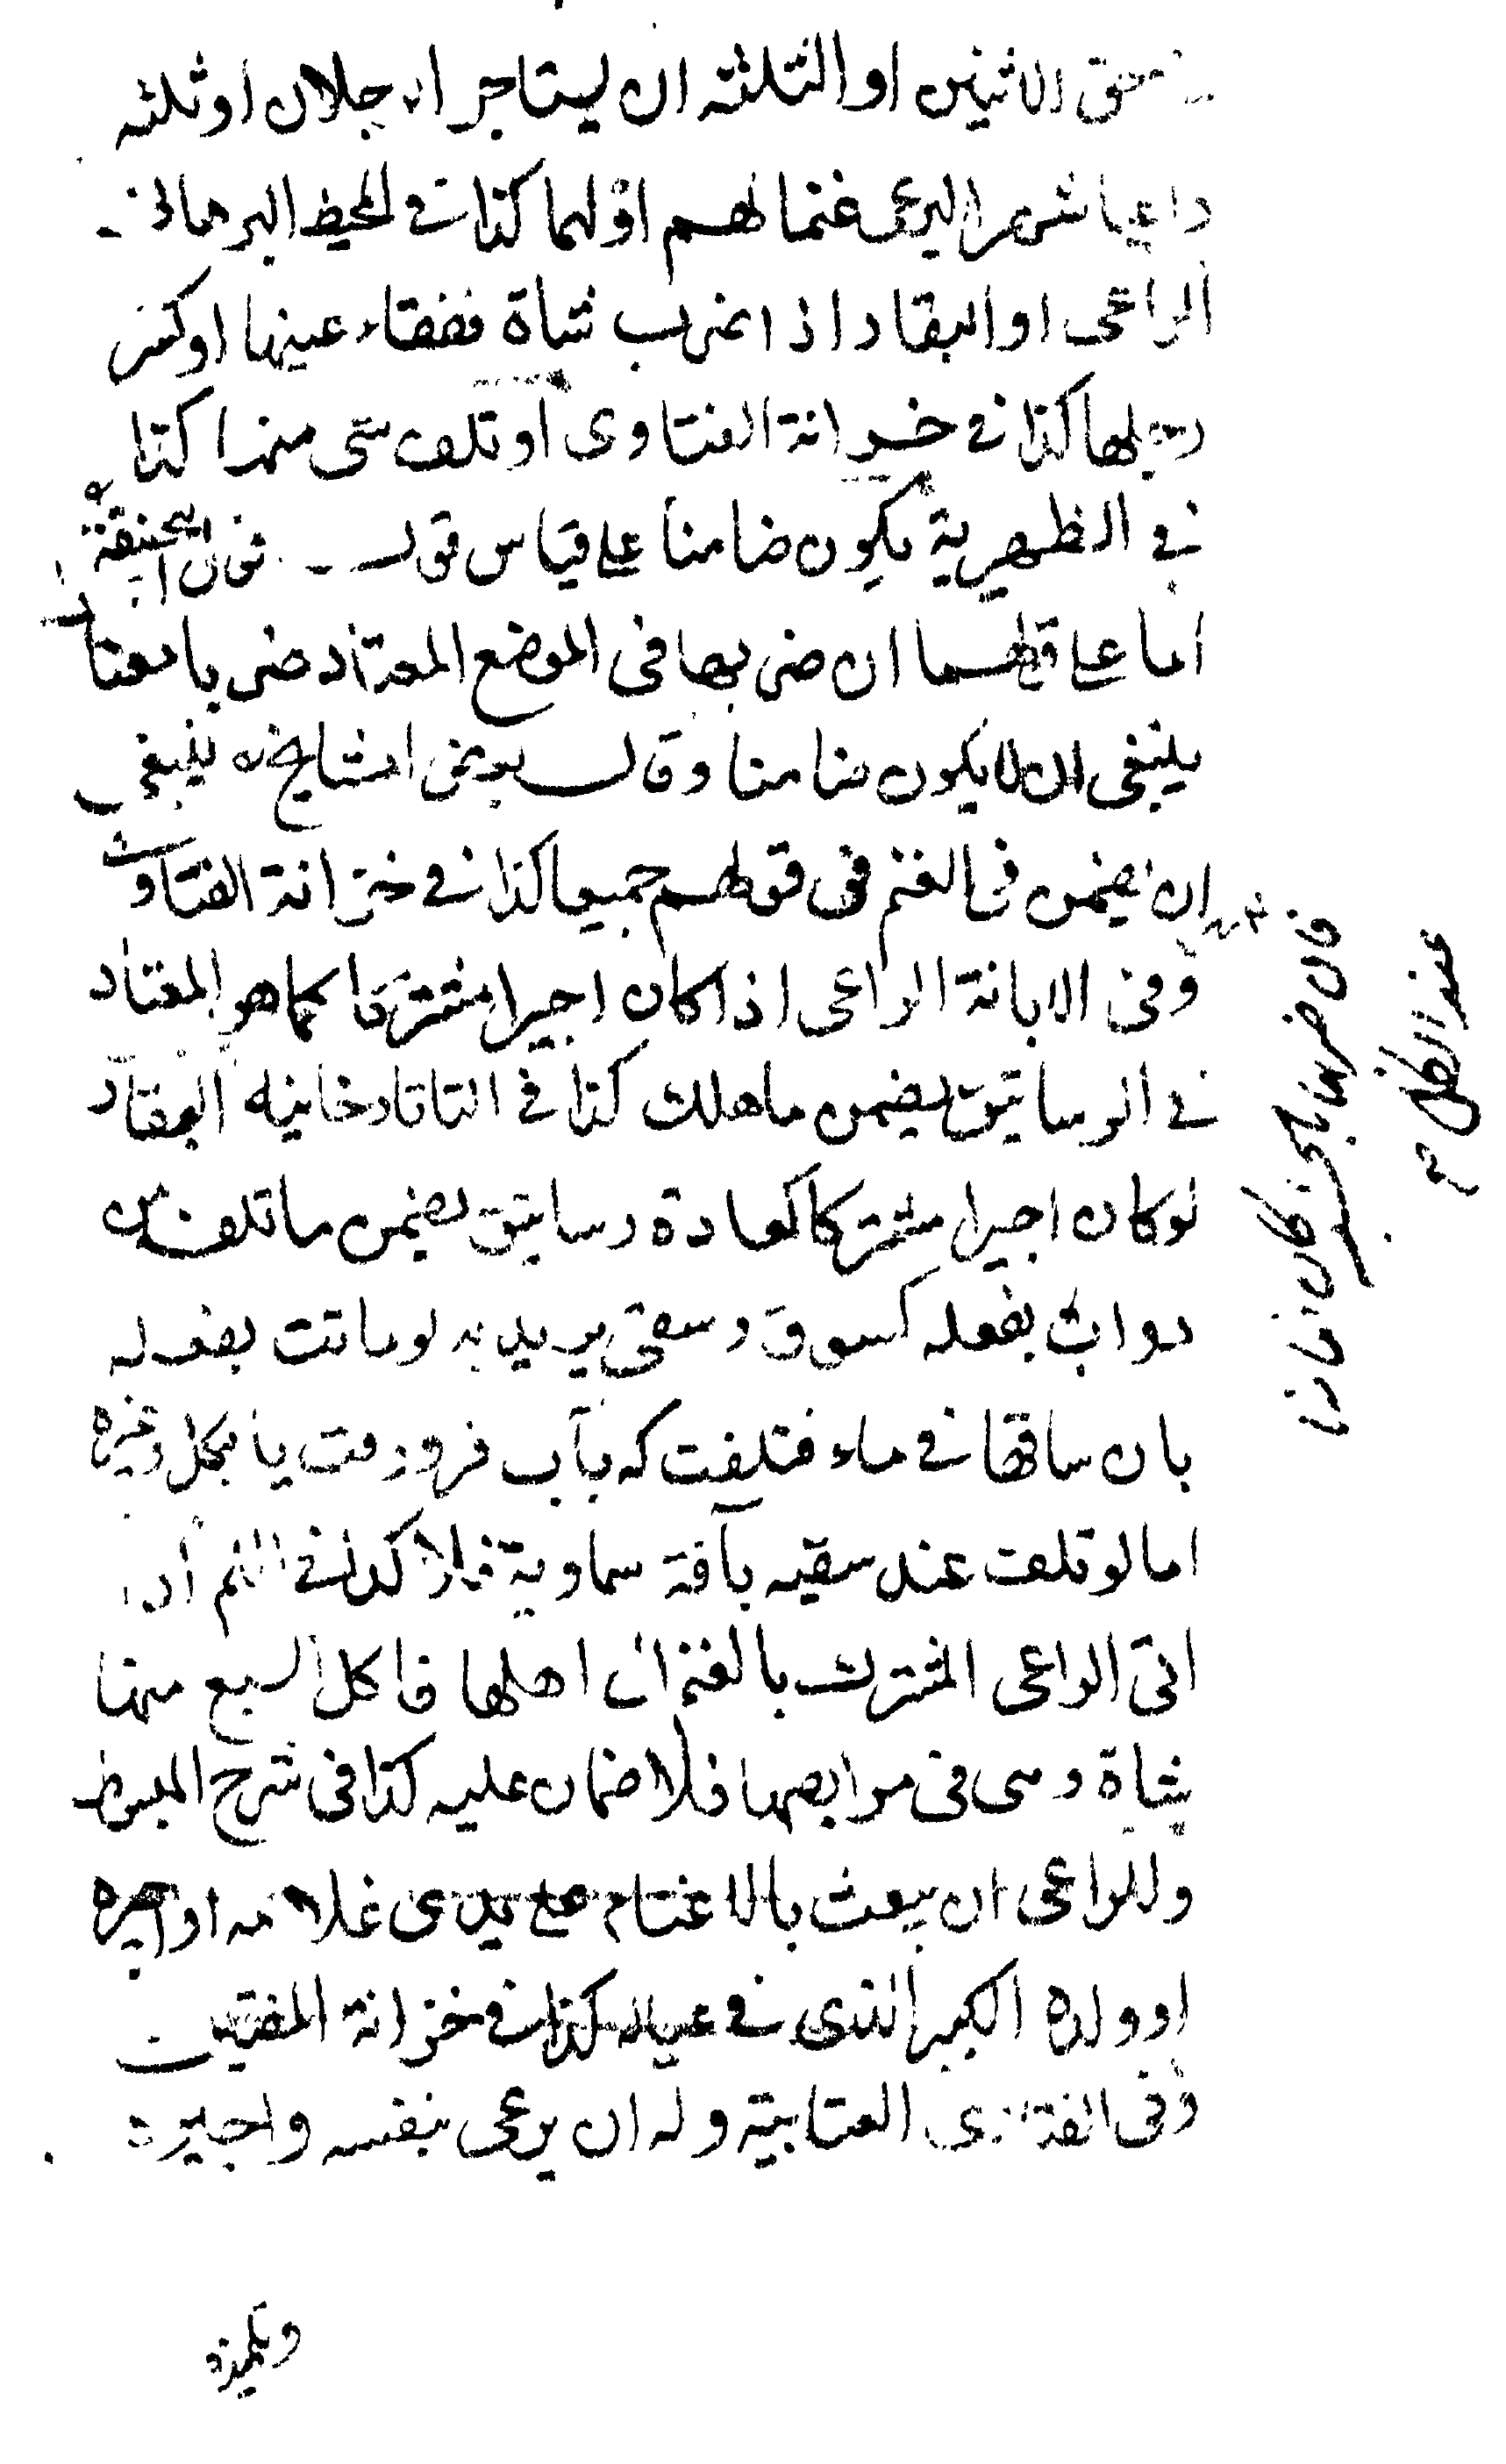 حق الاثنين او الثلثه ان يستاجر ارجلان او ثلثه
راعيا شهرا ليرعى غنما لهم او لهما كذا في المحيط البرهاني
الراعى او البقار اذا ضرب شاة ففقاء عينها او كسر
رجلها كذا في خزانة الفتاوى او تلف شى منها كذا
في الظهيرية يكون ضامنا على قياس قول ابيحنيفة
اما على قولهما ان ضربها فى الموضع المعتاد ضربا معتادا
ينبغى ان لا يكون ضامنا وقال بعض امشايخه ينبغى
ان يضمن فى الغنم فى قولهم جميعا كذا في خزانة الفتاوى
وفى الابانة الراعى اذا كان اجيرا مشتركا كما هو المعتاد
في الرساتيق يضمن ما هلك كذا في التاتارخانيه البقار
لو كان اجيرا مشتركا كعادة رساتيق يضمن ما تلف من
دواب بفعله كسوق وسقى يريد به لو ماتت بفعله
بان ساقها في ماء فتلفت كه بآب فرو رفت يا بجكل وغيره
اما لو تلفت عند سقيه بآفة سماوية فلا كذا في
اتى الراعى المشترك بالغنم الى اهلها فاكل السبع منها
شاة وهى فى مرابضها فلا ضمان عليه كذا فى شرح المبسوط
وللراعى ان يبعث بالاغنام على يدى غلامه او اجيره
او ولده الكبير الذى في عياله كذا في خزانة المفتين
وفى الفتاوى العتابية وله ان يرعى بنفسه واجيره
وتلميذه